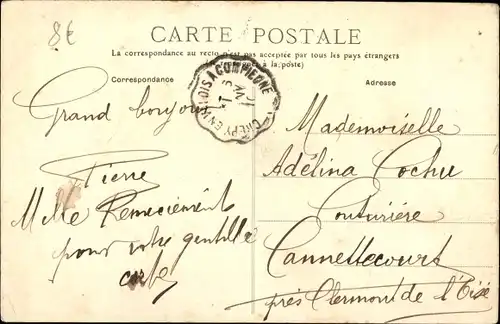 8€
CARTE POSTALE
La correspondance au recto n'est pas acceptée par tous les pays étrangers
à la poste)
Correspondance
Adresse
CREPY EN VALOIS A COMPIEGNE
Grand bonjour
Pierre
Mille Remerciement
pour votre gentille
carte
Mademoiselle
Adélina Cochu
Couturière
Cannettecourt
près Clermont de l'Oise